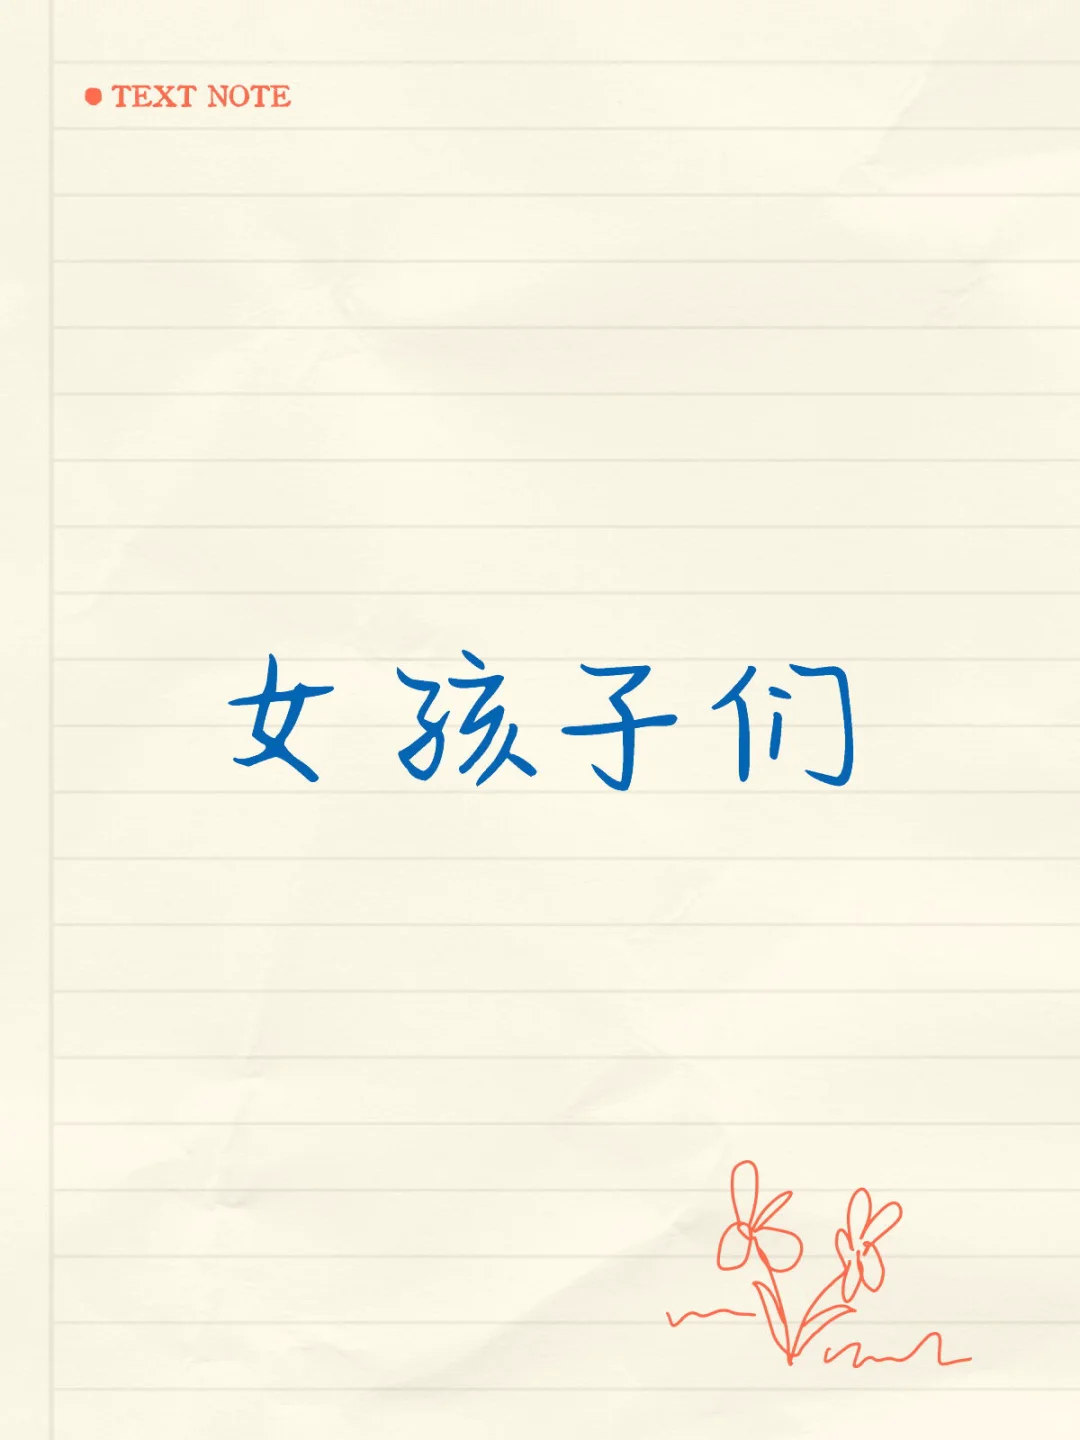 TEXT NOTE
女孩子们